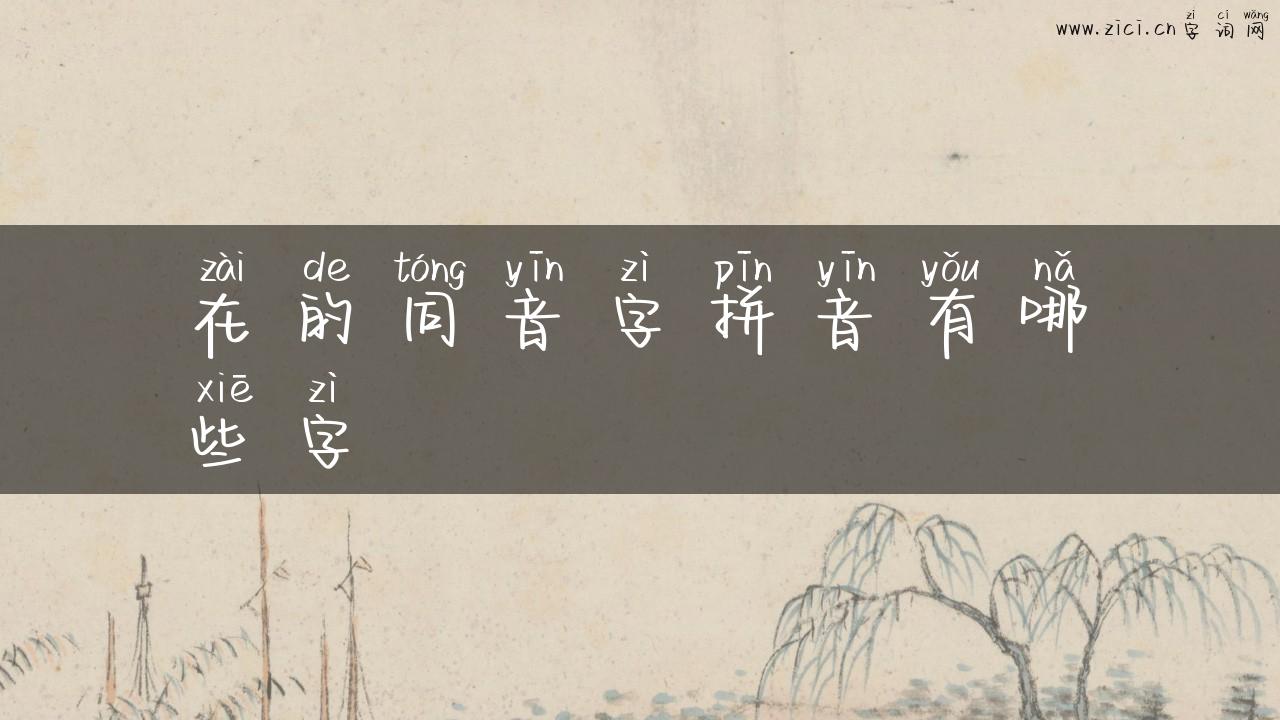 zì cí wǎng
www.zici.cn 字词网
zài de tóng yīn zì pīn yīn yǒu nǎ
在的同音字拼音有哪
xiē zì
些字